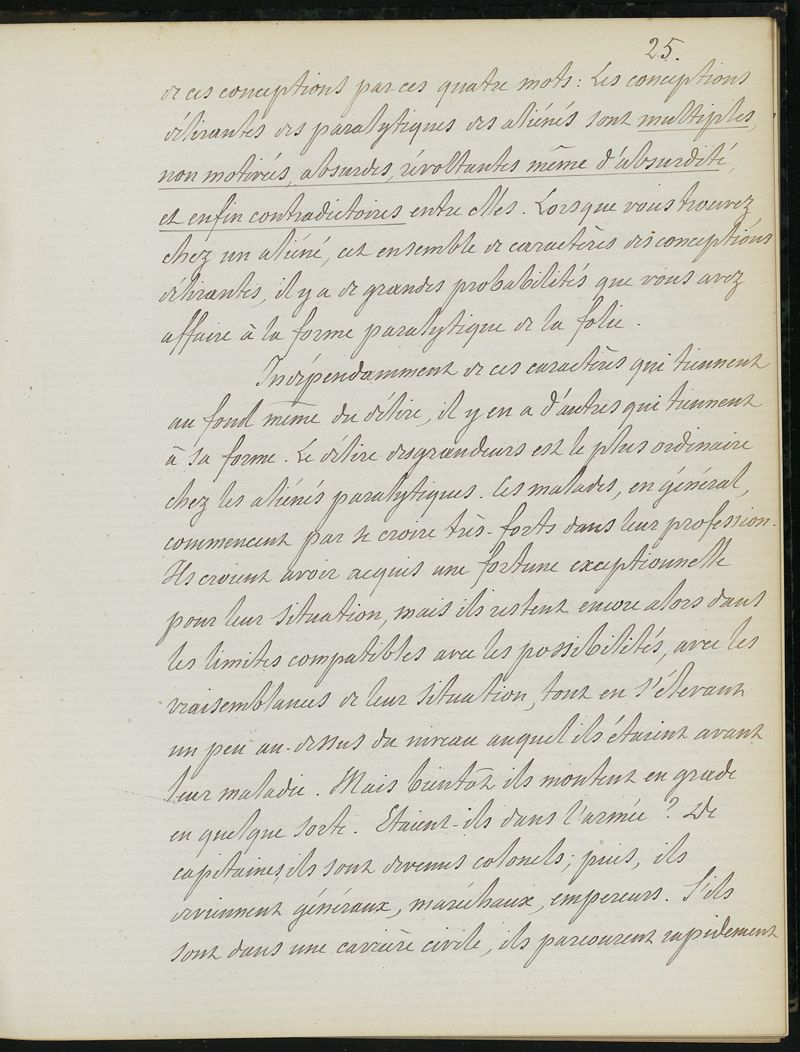 25.
de ces conceptions par ces quatre mots : Les conceptions
délirantes des paralytiques des aliénés sont multiples,
non motivées, absurdes, révoltantes même d'absurdité,
et enfin contradictoires entre elles. Lorsque vous trouvez
chez un aliéné, cet ensemble de caractères des conceptions
délirantes, il y a de grandes probabilités que vous avez
affaire à la forme paralytique de la folie.
Indépendamment de ces caractères qui tiennent
au fond même du délire, il y en a d'autres qui tiennent
à sa forme. Le délire des grandeurs est le plus ordinaire
chez les aliénés paralytiques. Ces malades, en général,
commencent par se croire très-forts dans leur profession.
Ils croient avoir acquis une fortune exceptionnelle
pour leur situation, mais ils restent encore alors dans
les limites compatibles avec les possibilités, avec les
vraisemblances de leur situation, tout en s'élevant
un peu au-dessus du niveau auquel ils étaient avant
leur maladie. Mais bientôt ils montent en grade
en quelque sorte. Etaient-ils dans l'armée ? De
capitaines, ils sont devenus colonels; puis, ils
deviennent généraux, maréchaux, empereurs. S'ils
sont dans une carrière civile, ils parcourent rapidement